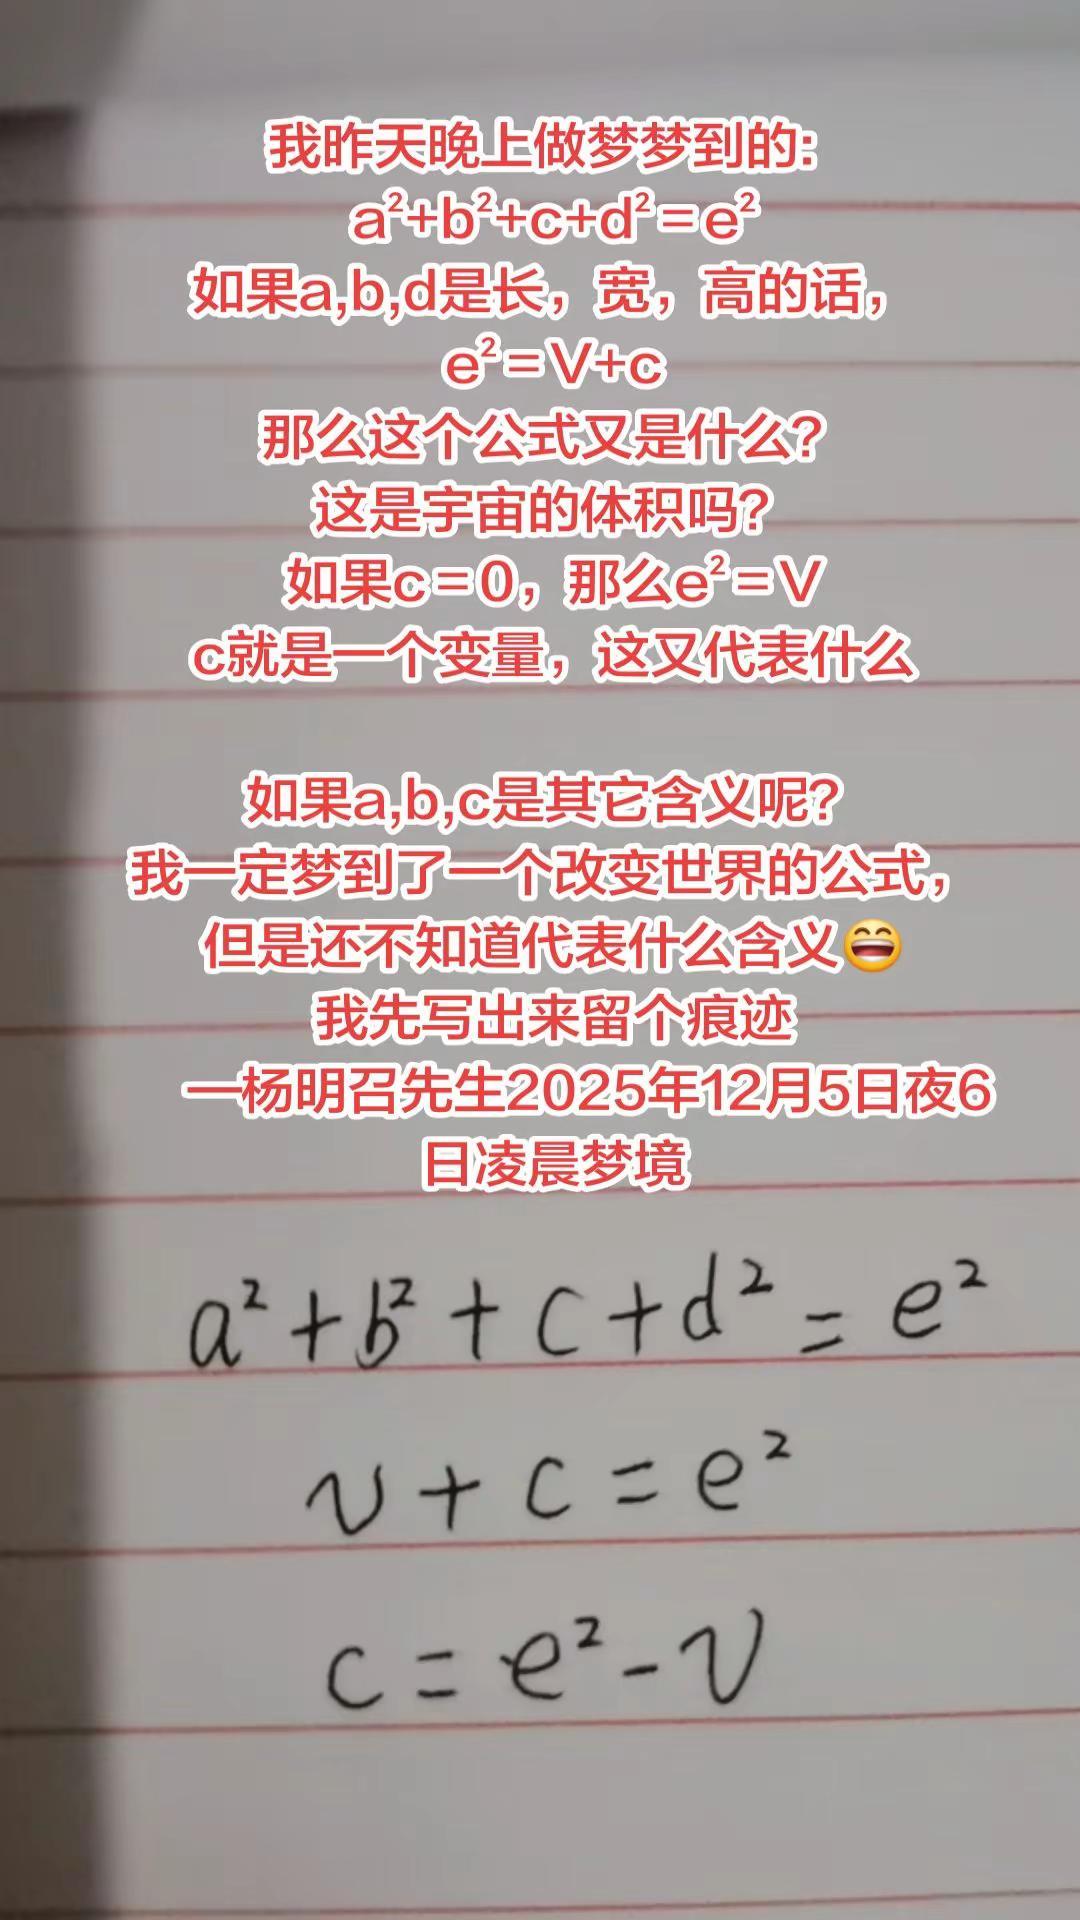 我昨天晚上做梦梦到的:
a²+b²+c+d²=e²
如果a,b,d是长，宽，高的话，
e²=V+c
那么这个公式又是什么？
这是宇宙的体积吗？
如果c=0，那么e²=V
c就是一个变量，这又代表什么
如果a,b,c是其它含义呢？
我一定梦到了一个改变世界的公式，
但是还不知道代表什么含义😄
我先写出来留个痕迹
—杨明召先生2025年12月5日夜6
日凌晨梦境
a²+b²+c+d²=e²
v+c=e²
c=e²-v